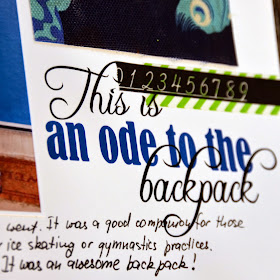 0123456789
This is
an ode to the
backpack
went. It was a good companion for those
ice skating or gymnastics practices.
It was an awesome backpack!